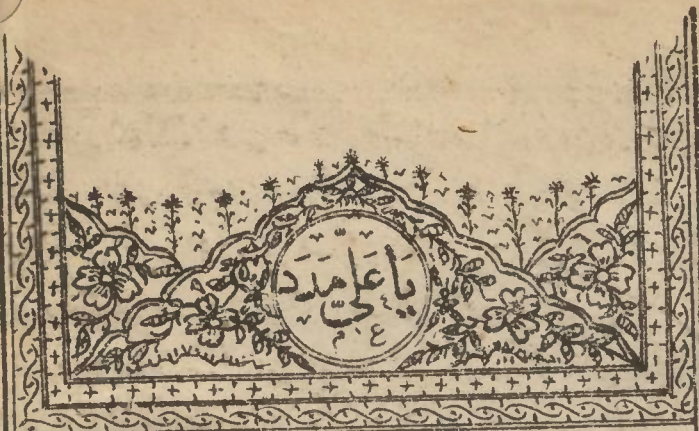 یا علی مدد
ع م